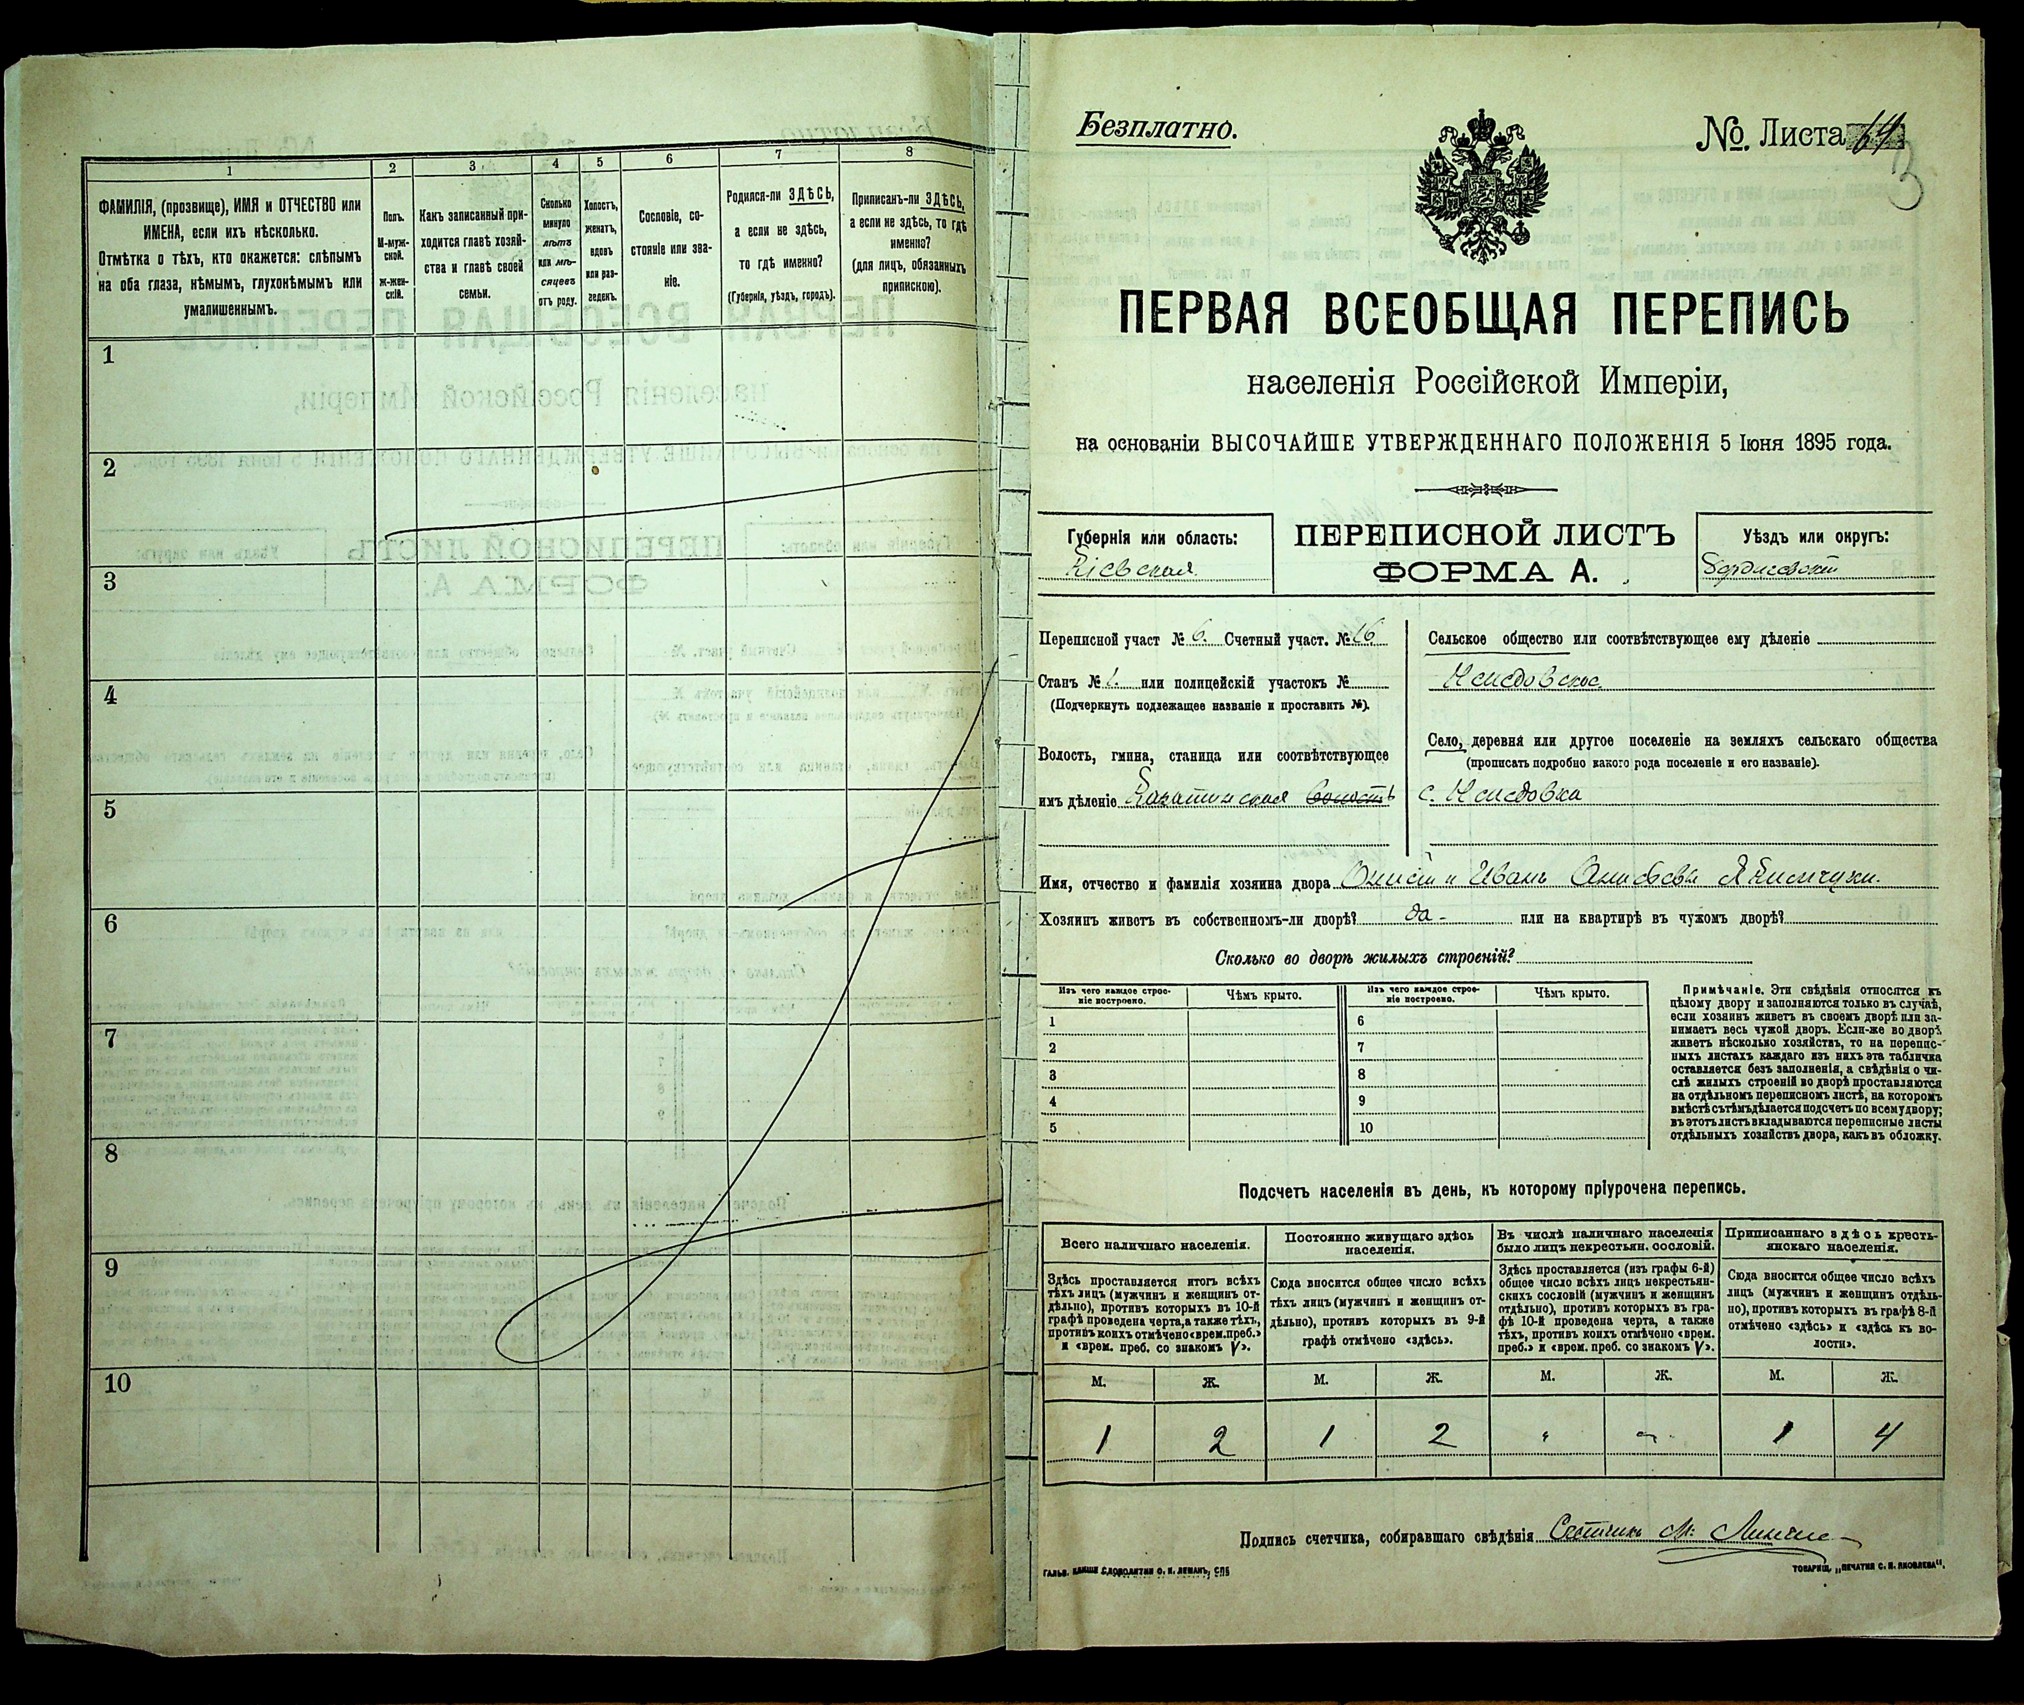 1
2
3
4
5
6
7
8
ФАМИЛІЯ, (прозвище), ИМЯ и ОТЧЕСТВО или
ИМЕНА, если ихъ нѣсколько.
Отмѣтка о тѣхъ, кто окажется: слѣпымъ
на оба глаза, нѣмымъ, глухонѣмымъ или
умалишеннымъ.
Полъ.
М-муж-
ской.
ж-жен-
скій.
Какъ записанный при-
ходится главѣ хозяй-
ства и главѣ своей
семьи.
Сколько
минуло
лѣтъ
или мѣ-
сяцевъ
отъ роду.
Холостъ,
женатъ,
вдовъ
или раз-
веденъ.
Сословіе, со-
стояніе или зва-
ніе.
Родился-ли ЗДѢСЬ,
а если не здѣсь,
то гдѣ именно?
(Губернія, уѣздъ, городъ).
Приписанъ-ли ЗДѢСЬ,
а если не здѣсь, то гдѣ
именно?
(для лицъ, обязанныхъ
припискою).
1
2
3
4
5
6
7
8
9
10
Безплатно.
№. Листа 64
3
ПЕРВАЯ ВСЕОБЩАЯ ПЕРЕПИСЬ
населенія Россійской Имперіи,
на основаніи ВЫСОЧАЙШЕ УТВЕРЖДЕННАГО ПОЛОЖЕНІЯ 5 Іюня 1895 года.
Губернія или область:
Кіевская
ПЕРЕПИСНОЙ ЛИСТЪ
ФОРМА А.
Уѣздъ или округъ:
Бердичевскій
Переписной участ № 6. Счетный участ. № 16
Станъ № 1. или полицейскій участокъ №
(Подчеркнуть подлежащее названіе и проставить №).
Волость, гмина, станица или соотвѣтствующее
имъ дѣленіе Казатинская волость
Сельское общество или соотвѣтствующее ему дѣленіе
Село, деревня или другое поселеніе на земляхъ сельскаго общества
(прописать подробно какого рода поселеніе и его названіе).
с.
Имя, отчество и фамилія хозяина двора и Иванъ
Хозяинъ живетъ въ собственномъ-ли дворѣ? да - или на квартирѣ въ чужомъ дворѣ?
Сколько во дворѣ жилыхъ строеній?
Изъ чего каждое строе-
ніе построено.
Чѣмъ крыто.
Изъ чего каждое строе-
ніе построено.
Чѣмъ крыто.
1
2
3
4
5
6
7
8
9
10
Примѣчаніе. Эти свѣдѣнія относятся къ
цѣлому двору и заполняются только въ случаѣ,
если хозяинъ живетъ въ своемъ дворѣ или за-
нимаетъ весь чужой дворъ. Если-же во дворѣ
живетъ нѣсколько хозяйствъ, то на перепис-
ныхъ листахъ каждаго изъ нихъ эта табличка
оставляется безъ заполненія, а свѣдѣнія о чи-
слѣ жилыхъ строеній во дворѣ проставляются
на отдѣльномъ переписномъ листѣ, на которомъ
вмѣстѣ съ тѣмъ дѣлается подсчетъ по всему двору;
въ этотъ листъ вкладываются переписные листы
отдѣльныхъ хозяйствъ двора, какъ въ обложку.
Подсчетъ населенія въ день, къ которому пріурочена перепись.
Всего наличнаго населенія.
Здѣсь проставляется итогъ всѣхъ
тѣхъ лицъ (мужчинъ и женщинъ от-
дѣльно), противъ которыхъ въ 10-й
графѣ проведена черта, а также тѣхъ,
противъ коихъ отмѣчено «врем. преб.»
и «врем. преб. со знакомъ V».
Постоянно живущаго здѣсь
населенія.
Сюда вносится общее число всѣхъ
тѣхъ лицъ (мужчинъ и женщинъ от-
дѣльно), противъ которыхъ въ 9-й
графѣ отмѣчено «здѣсь».
Въ числѣ наличнаго населенія
было лицъ некрестьян. сословій.
Здѣсь проставляется (изъ графы 6-й)
общее число всѣхъ лицъ некрестьян-
скихъ сословій (мужчинъ и женщинъ
отдѣльно), противъ которыхъ въ гра-
фѣ 10-й проведена черта, а также
тѣхъ, противъ коихъ отмѣчено «врем.
преб.» и «врем. преб. со знакомъ V».
Приписаннаго здѣсь кресть-
янскаго населенія.
Сюда вносится общее число всѣхъ
лицъ (мужчинъ и женщинъ отдѣль-
но), противъ которыхъ въ графѣ 8-й
отмѣчено «здѣсь» и «здѣсь къ во-
лости».
М. Ж. М. Ж. М. Ж. М. Ж.
1 2 1 2 " " 1 4
Подпись счетчика, собиравшаго свѣдѣнія Счетчикъ
ГАЛЬВ. КЛИШЕ СЛОВОЛИТНИ О. И. ЛЕМАНЪ, СПБ
ТОВАРИЩ. „ПЕЧАТНЯ С. П. ЯКОВЛЕВА".